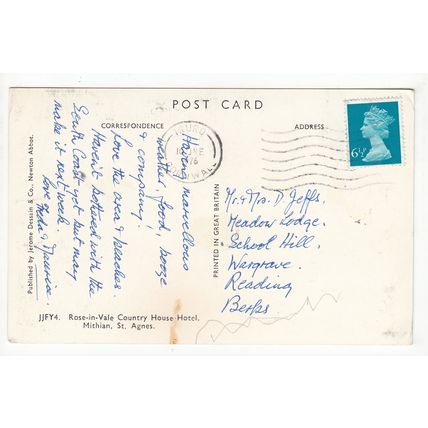 POST CARD
CORRESPONDENCE
ADDRESS
TRURO
JNE
76
CORNWALL
6½P
Having marvellous
weather, food, booze
& company!
Love the area & beaches.
Haven't bothered with the
South Coast yet but may
make it next week
Love & Maurice.
Mr. & Mrs. D. Jeffs,
Meadow Lodge,
School Hill,
Wargrave,
Reading,
Berks
PRINTED IN GREAT BRITAIN
Published by Jerome Dessain & Co., Newton Abbot.
JJFY4. Rose-in-Vale Country House Hotel,
Mithian, St. Agnes.